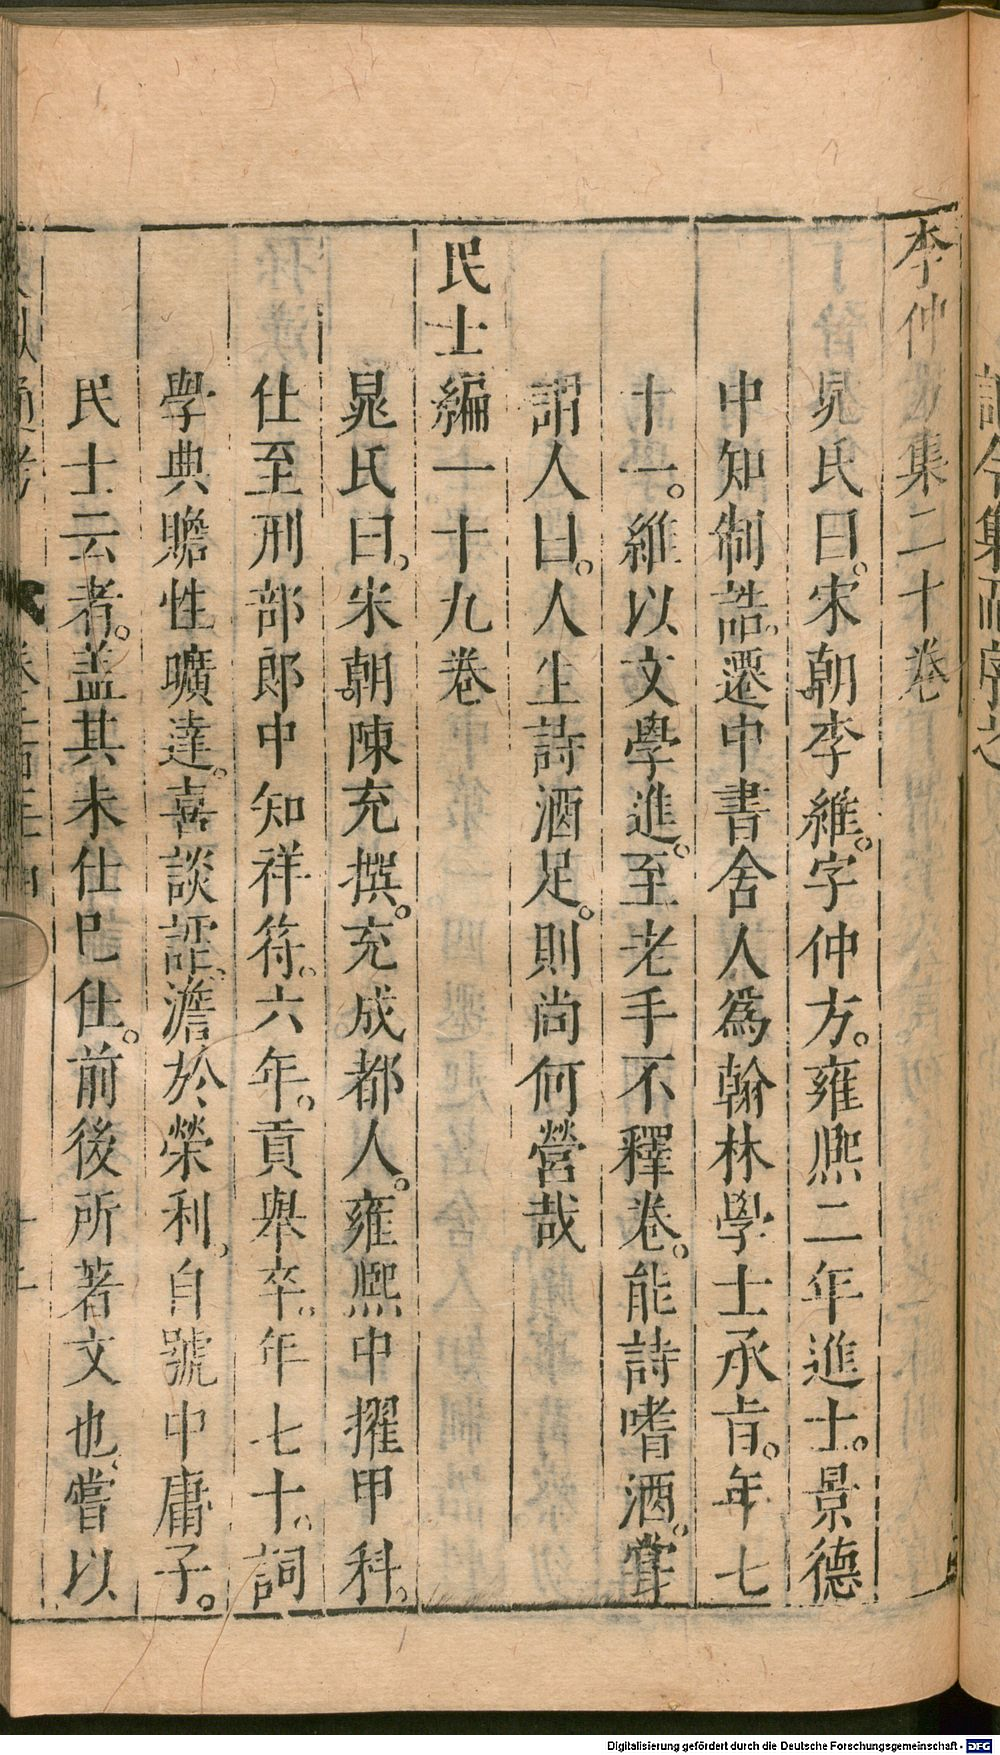 李仲方集二十卷
晁氏曰。宋朝李維。字仲方。雍熙二年進士。景德
中知制誥。遷中書舍人為翰林學士承旨。年七
十一。維以文學進。至老手不釋卷。能詩嗜酒。嘗
謂人曰。人生詩酒足。則尚何營哉
民士編一十九卷
晁氏曰。宋朝陳充撰。充成都人。雍熙中擢甲科。
仕至刑部郎中知祥符。六年。貢舉卒。年七十。詞
學典贍性曠達。喜談謔。澹於榮利。自號中庸子。
民士云者。蓋其未仕巳仕。前後所著文也。嘗以
Digitalisierung gefördert durch die Deutsche Forschungsgemeinschaft - DFG